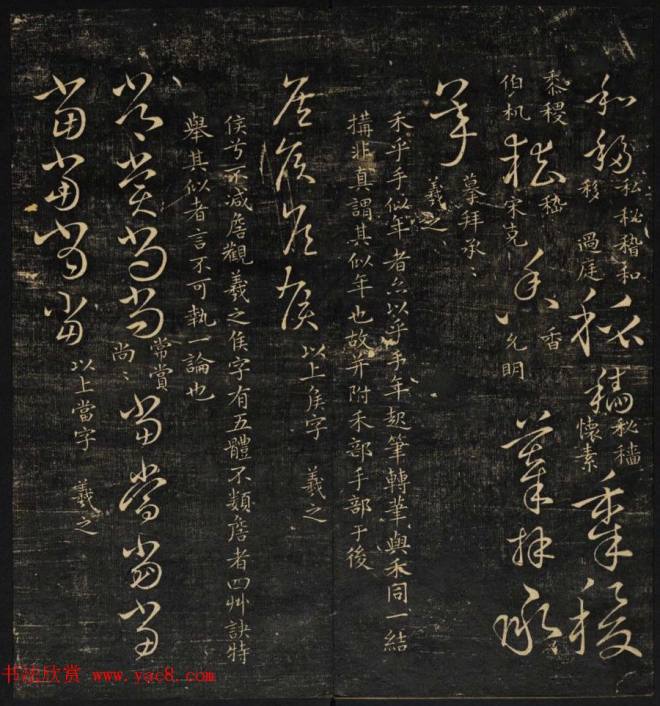 和
移
過庭
秋穡
懷素
黍稷
黍稷
伯机
嵇
宋克
香
允明
摹拜承
摹拜承
羲之
禾乎手似年者亦以乎手年起筆轉筆與禾同一結
搆非真謂其似年也故并附禾部手部于後
侯侯侯侯 以上侯字 羲之
侯兮不減詹觀羲之侯字有五體不類詹者四艸訣特
舉其似者言不可執一論也
常賞尚尚
常賞
尚
當當當當
當當當當 以上當字 羲之
书法欣赏 www.yac8.com